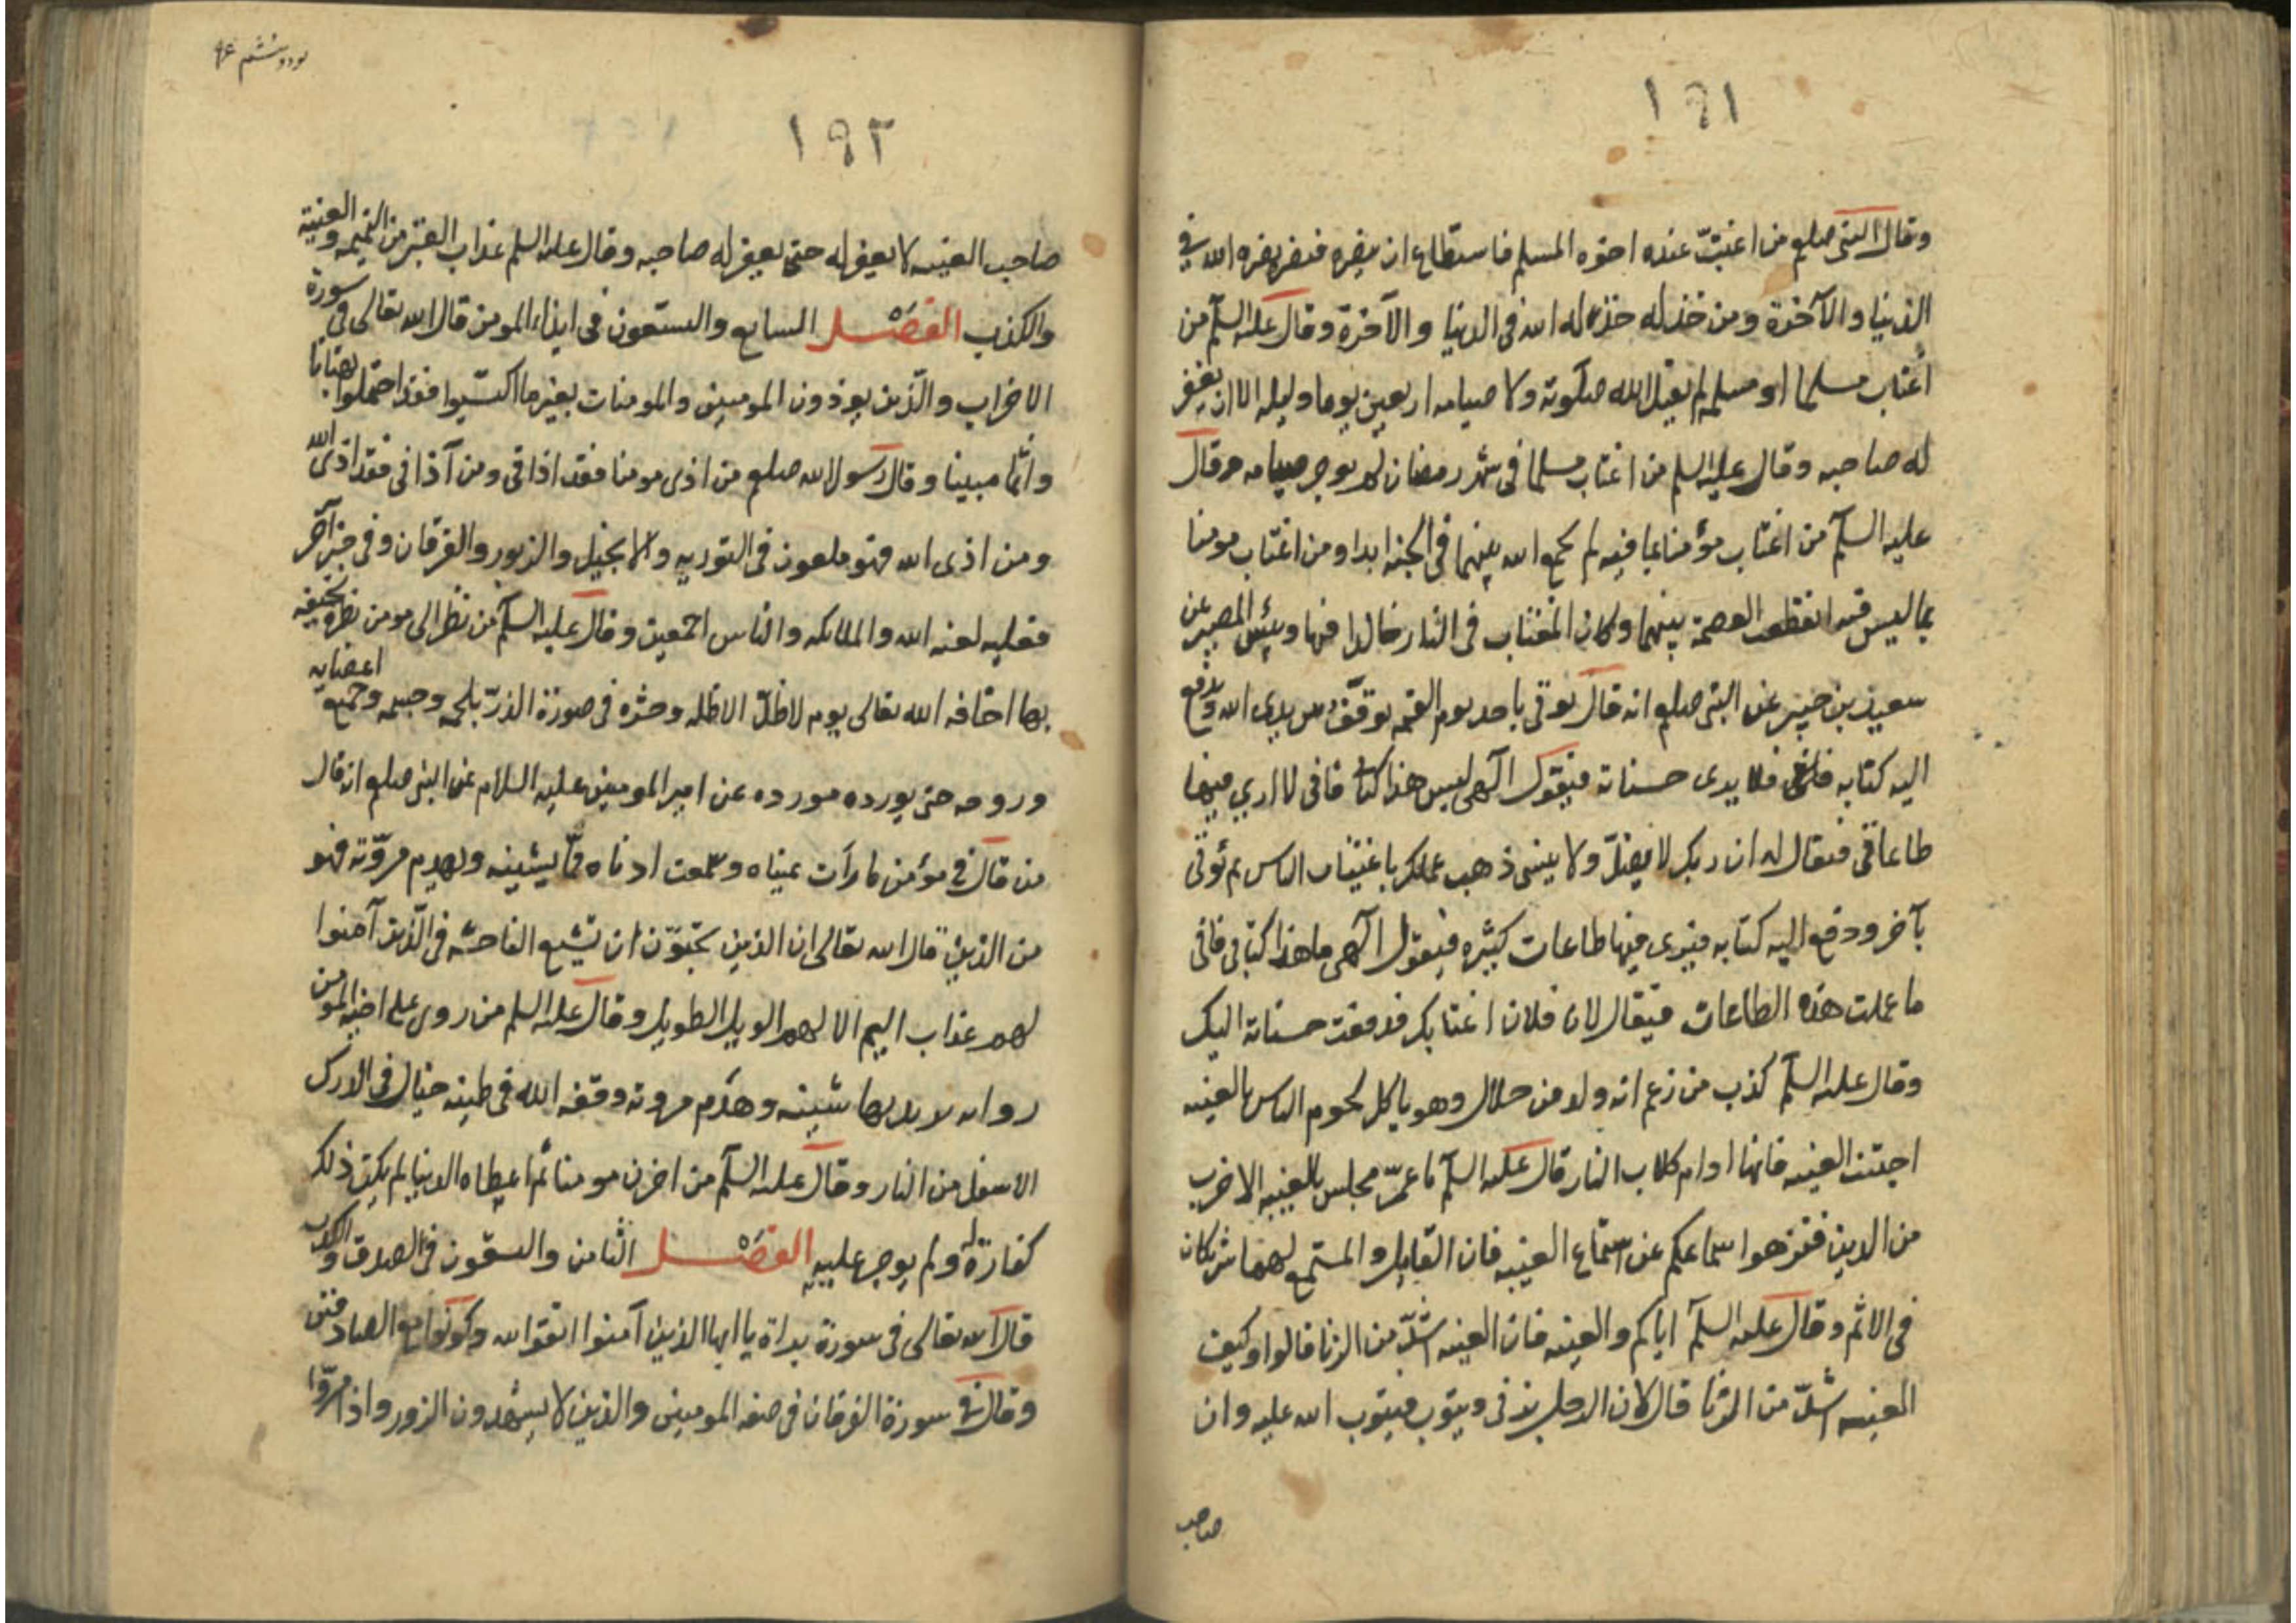 ١٩١
وقال النبي صلعم من اغتيب عنده اخوه المسلم فاستطاع ان ينصره فنصره نصره الله في
الدنيا والآخرة ومن خذله خذله الله في الدنيا والآخرة وقال عليه السلم من
اغتاب مسلما او مسلمه لم يقبل الله صلوته ولا صيامه اربعين يوما وليله الا ان يغفر
له صاحبه وقال عليه السلم من اغتاب مسلما في شهر رمضان لم يوجر صيامه وقال
عليه السلم من اغتاب مؤمنا بما فيه لم يجمع الله بينهما في الجنه ابدا ومن اغتاب مومنا
بما ليس فيه انقطعت العصمة بينهما وكان المغتاب في النار خالدا فيها وبئس المصير عن
سعيد بن جبير عن النبي صلعم انه قال يوتى باحد يوم القيمه يوقف بين يدي الله ويدفع
اليه كتابه فلا يرى حسناته فيقول الهي ليس هذا كتابي فاني لا اري فيها
طاعاتي فيقال له ان ربك لا يضل ولا ينسى ذهب عملك باغتياب الناس ثم يؤتى
بآخر ودفع اليه كتابه فيرى فيها طاعات كثيره فيقول الهي ما هذا كتابي فاني
ما عملت هذه الطاعات فيقال لان فلان اغتابك فدفعت حسناته اليك
وقال عليه السلم كذب من زعم انه ولد من حلال وهو ياكل لحوم الناس بالغيبه
اجتنب الغيبه فانها ادام كلاب النار قال عليه السلم ما عمر مجلس بالغيبه الا خرب
من الدين فنزهوا اسماعكم عن استماع الغيبه فان القايل والمستمع لها شريكان
في الاثم وقال عليه السلم اياكم والغيبه فان الغيبه اشد من الزنا قالوا وكيف
الغيبه اشد من الزنا قال لان الرجل يزني ويتوب فيتوب الله عليه وان
صاحب
١٩٢
صاحب الغيبه لا يغفر له حتى يغفر له صاحبه وقال عليه السلم عذاب القبر من النميمه والغيبة
والكذب الفصل السابع والستعون في ايذاء المومن قال الله تعالى في سورة
الاحزاب والذين يوذون المومنين والمومنات بغير ما اكتسبوا فقد احتملوا بهتانا
واثما مبينا وقال رسول الله صلعم من اذى مومنا فقد اذاني ومن آذاني فقد اذى الله
ومن اذى الله فهو ملعون في التوريه والانجيل والزبور والفرقان وفي خبر آخر
فعليه لعنه الله والملائكه والناس اجمعين وقال عليه السلم من نظر الى مومن نظره يخيفه
بها اخافه الله تعالى يوم لا ظل الا ظله وحشره في صورة الذر بلحمه وجسمه وجميع اعضايه
وروحه حتى يورده مورده عن امير المومنين عليه السلام عن النبي صلعم انه قال
من قال في مؤمن ما رأت عيناه وسمعت اذناه مما يشينه ويهدم مروته فهو
من الذين قال الله تعالى ان الذين يحبون ان تشيع الفاحشه في الذين آمنوا
لهم عذاب اليم الا لهم الويل الطويل وقال عليه السلم من روى على اخيه المومن
روايه يريد بها شينه وهدم مروته وقفه الله في طينه خبال في الدرك
الاسفل من النار وقال عليه السلم من احزن مومنا ثم اعطاه الدنيا لم يكن ذلك
كفارة له ولم يوجر عليه الفصل الثامن والستعون في الصدق والكذب
قال الله تعالى في سورة براة يا ايها الذين آمنوا اتقوا الله وكونوا مع الصادقين
وقال في سورة الفرقان في صفه المومنين والذين لا يشهدون الزور واذا مروا